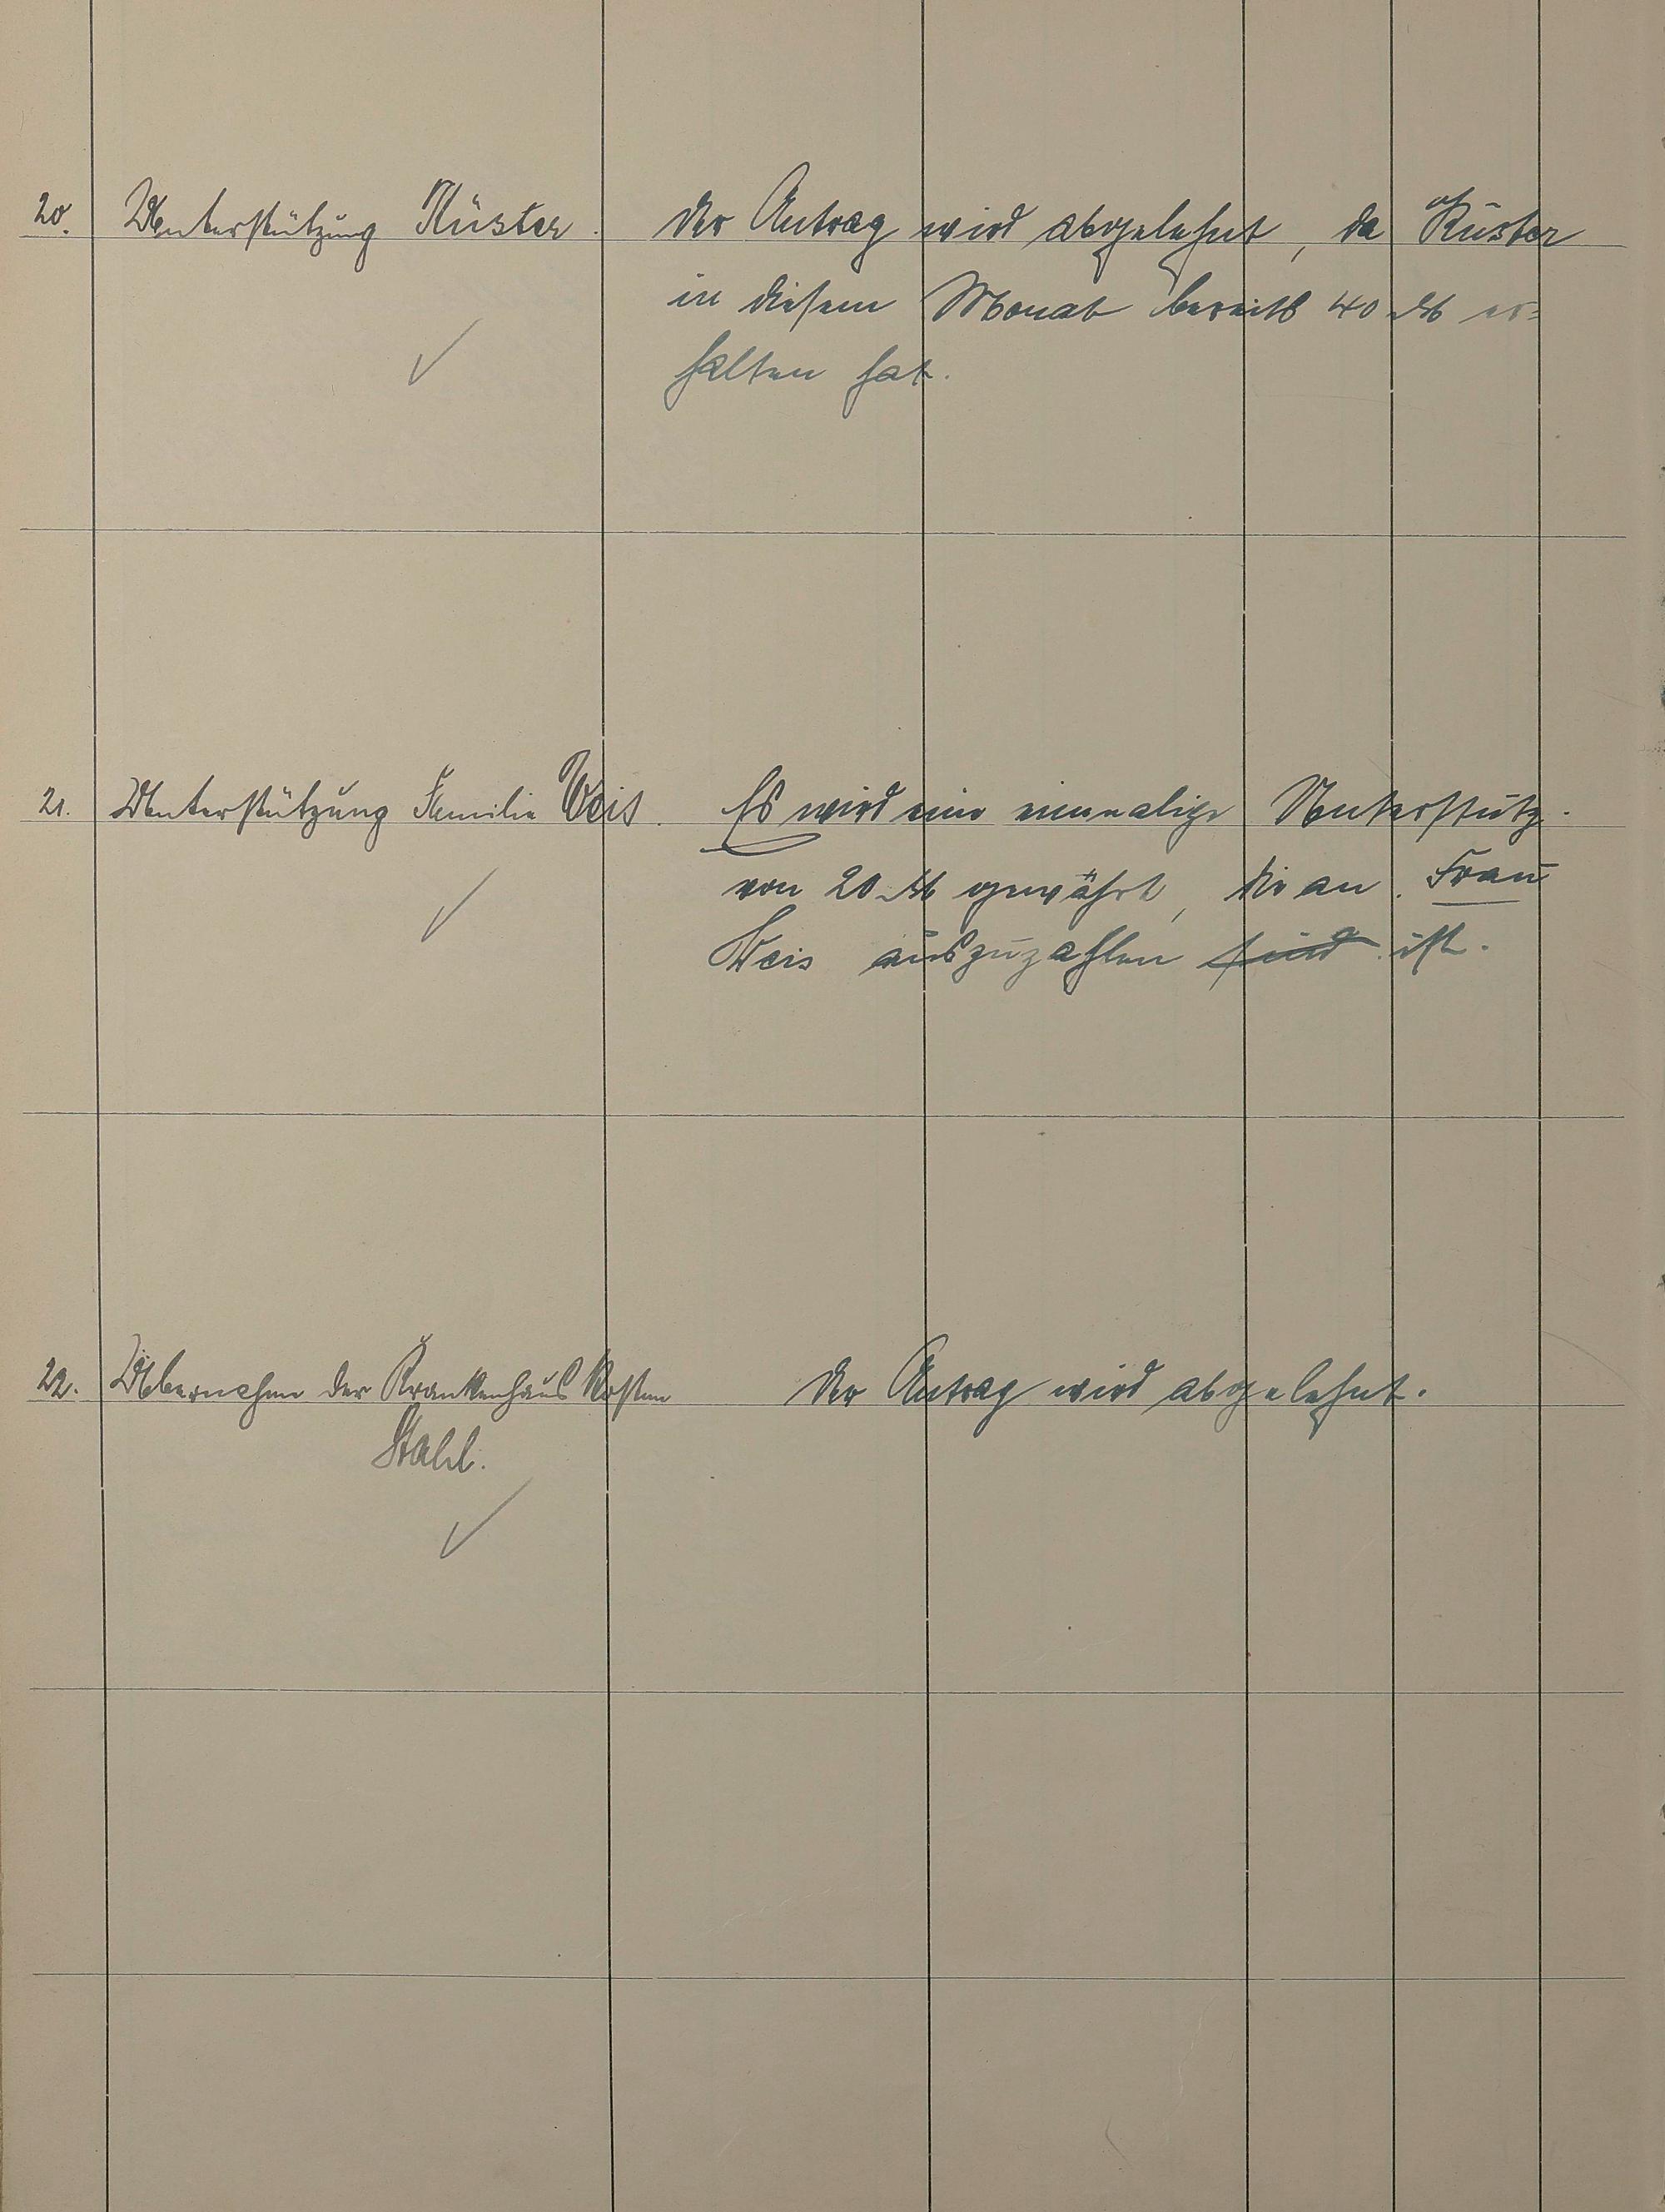 20. Unterstützung Küster. Der Antrag wird abgelehnt, da Küster
in diesem Monat bereits 40 M er-
halten hat.
21. Unterstützung Familie Weis. Es wird eine einmalige Unterstütz.
von 20 M gewährt, die an Frau
Weis auszuzahlen sind ist.
22. Übernahme der Krankenhauskosten Der Antrag wird abgelehnt.
Stahl.